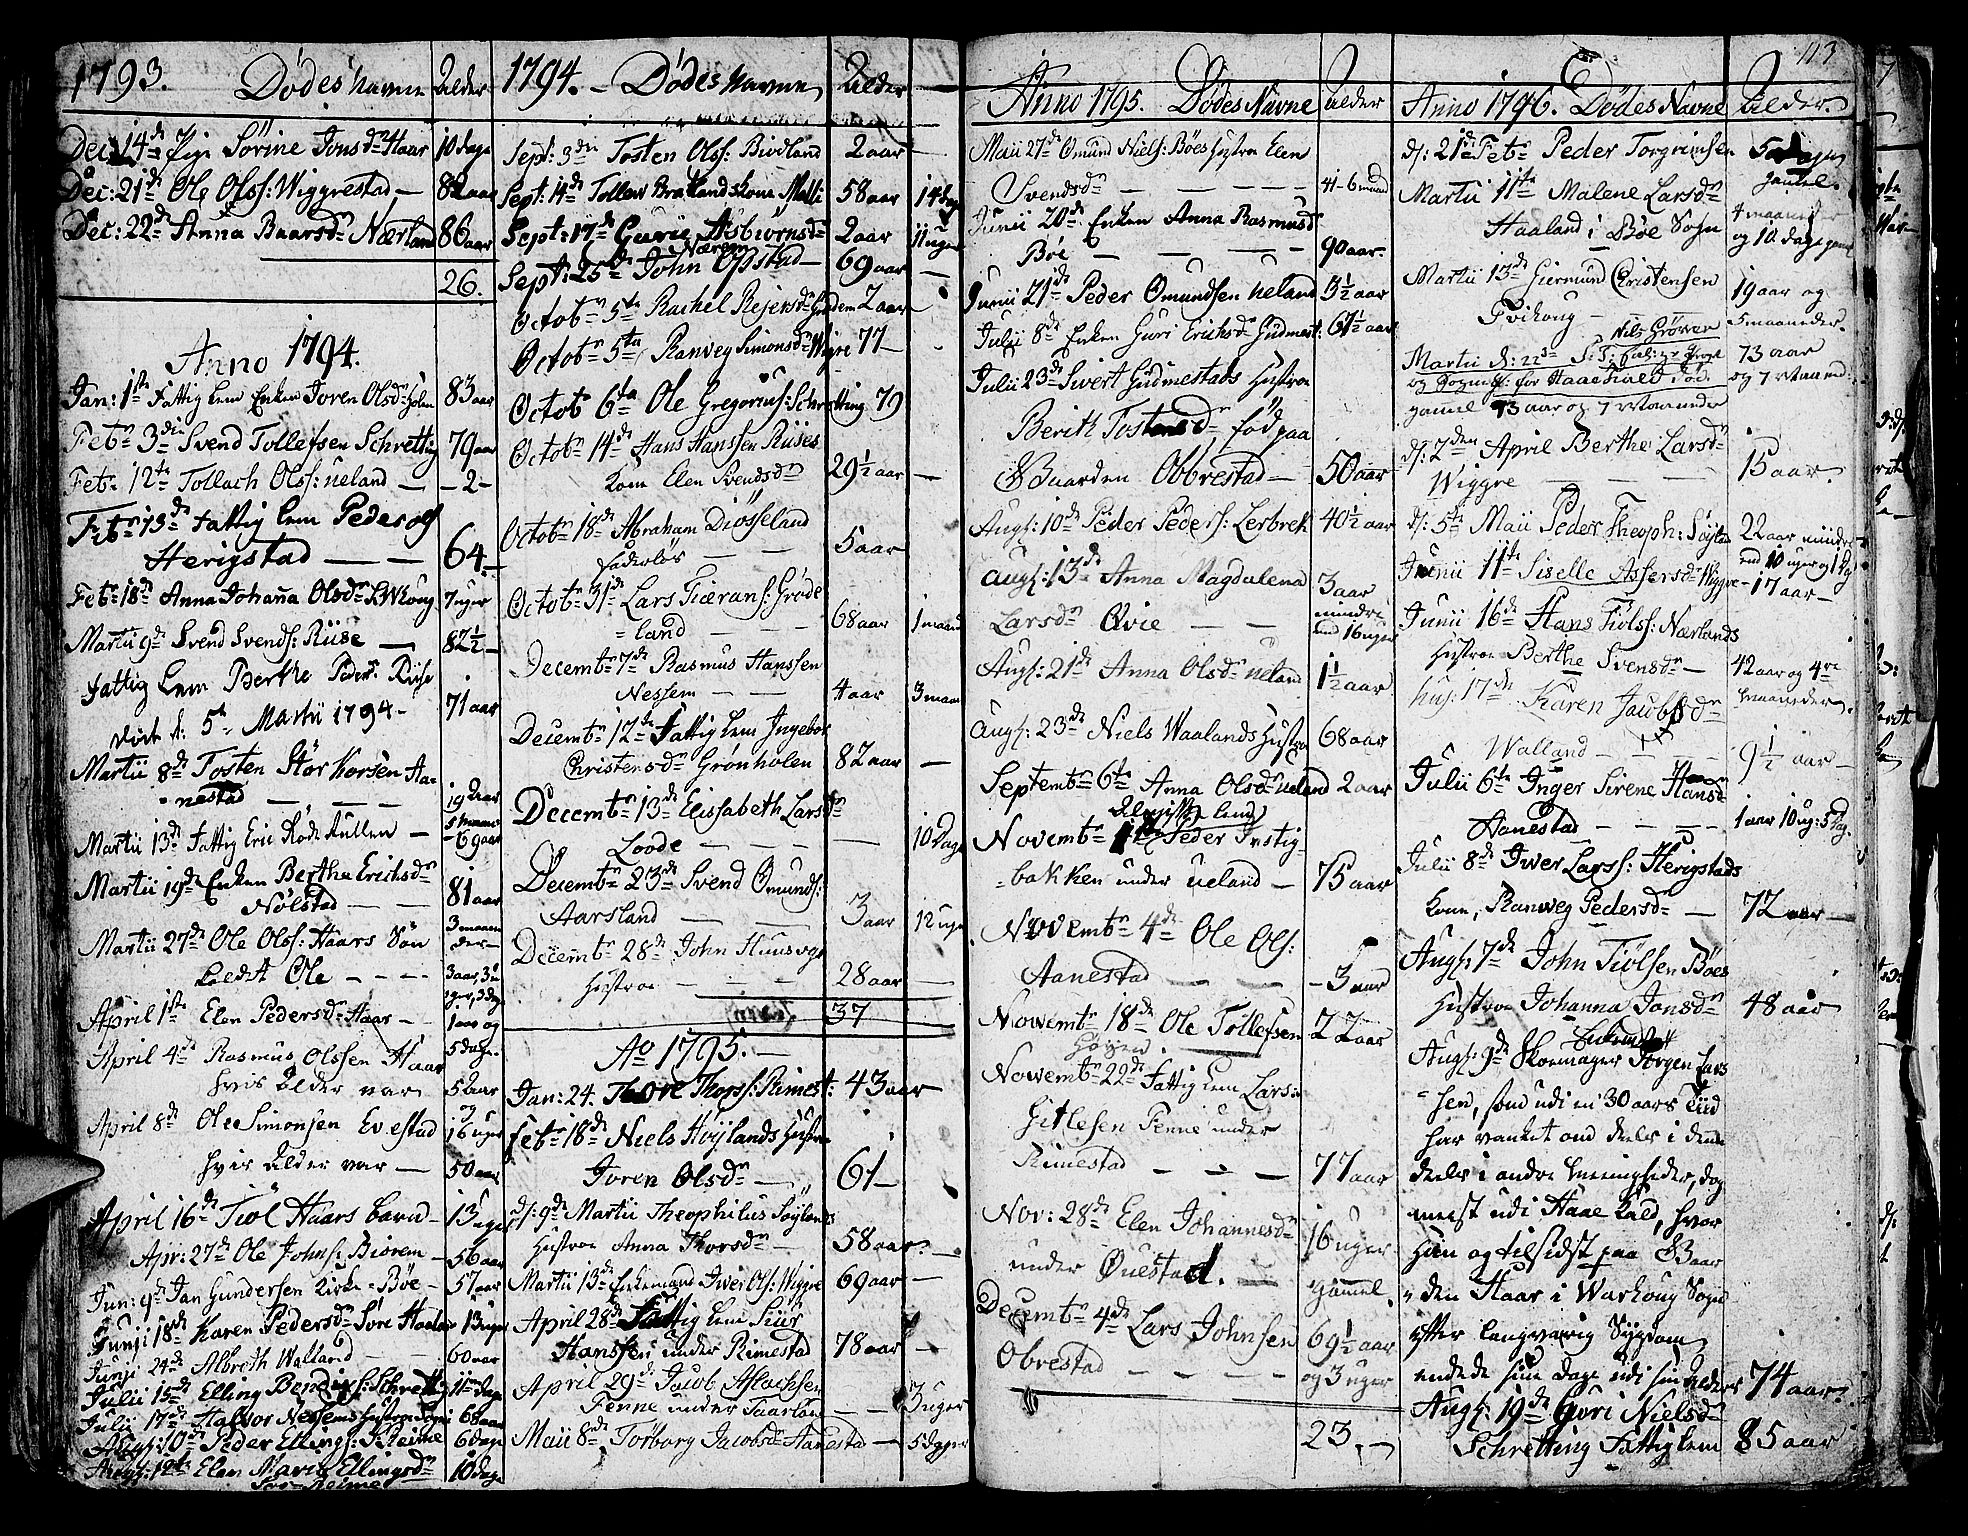 1793. Dødes navne Alder
Dec: 14de Pige Sörine Jonsdr Haar 10 dage
Dec: 21de Ole Olss: Wiggrestad — 82 aar
Dec: 22de Anna Baarsdr Nærland 86 aar
26.
Anno 1794.
Jan: 1ste Fattig Lem Enken Joren Olsdr Holen 83 aar
Febr 3die Svend Tollefsen Schretting 79 aar
Febr 12te Tollach Olss: Ueland — 2 —
Febr 13de Fattig Lem Peder Ols
Herigstad — — 64. —
Febr 18de Anna Johanna Olsdr 7 uger
Martii 9de Svend Svends: Riise — 82½ —
Fattig Lem Berthe Peders: Riise
død d: 5te Martii 1794 — 71 aar
Martii 8de Tosten Störkorsen Aa-
nestad — — — 19 Aar 5 maan
Martii 13de Fattig Eric Røde Kullen — 69 aar
Martii 19de Enken Bertha Erichsdr
Nølstad — — 81 aar
Martii 27de Ole Olss: Haars Sön 3 maaneder —
Ole — — — 3 aar, 3 uger, 3 dage
April 1ste Elen Pedersdr Haar — 1 aar og
April 4de Rasmus Olssen Haar 5 dage
hvis alder var 52 aar
April 8de Ole Simonsen Evestad 16 uger
hvis alder var — 50 aar
April 16de Tiöl Haars barn — 13 uger
Apr: 27de Ole Johns: Biorem — 56 aar
Jun: 9de Jan Gundersen Kirke-Bøe — 57 aar
Junii 18de Karen Pedersdr Söre 13 uger
Junji 24de Albreth Walland — 60 aar
Julii 15de Elling Schretting 11 dage
Julii 17de Halvor Nessems Hustroe 68 aar
Augs: 10de Peder Ellings: S. Reime 6 dage
Augs: 12te Elen Maria Ellingsdr 10 dage
Reime
1794. — Dødes navne Alder
Sept: 3die Tosten Olss: Birkland 2 aar —
Sept: 14de Tollew Bratlands kone Malli 58 aar 14 dage
Sept: 17de Guru Asbiörnsdr 2 aar 11 uger
Nærem
Sept: 25de John Opstad — 69 aar —
Octobr 5te Rachel Rejersdr Grödem 2 aar
Octobr 5te Ranveg Simonsdr Wigre 77 —
Octobr 6te Ole Gregorius: Schretting 79
Octobr 14de Hans Hanssen Riises
Kone Elen Svendsdr 29½ aar —
Octobr 18de Abraham Diösseland
faderlös — — 5 aar
Octobr 31de Lars Tiærans: Gröde
=land — — — 68 aar 1 maaned
Decembr 7de Rasmus Hanssen
Nessem — — 4 aar 3 maan
Decembr 12te Fattig Lem Ingebor
Christensdr Grönholen 82 aar —
Decembr 13de Elissabeth Larsdr
Loode — — — — 10 Dage
Decembr 23de Svend Omunds:
Aarsland — — — 3 aar 12 uger
Decembr 28de John Huusvegs
Hustroe — — — — 28 aar —
37
Ao 1795. —
Jan: 24. Tore Thorss: Rimest: 43 aar
Febr 18de Niels Höjlands Hustroe
Joren Olsdr — 61 —
d: 9de Martii Theophilus Söylands
Hustroe Anna Thorsdr — 58 aar. —
Martii 13de Enkemand Iwer Ols: Wiggre 69 aar —
April 28de Fattig Lem Siur
Hanssen under Rimestad 78 aar —
April 29de Jacob Aslachsen
Penne under Taarland — — 3 uger
Maii 8de Torborg Jacobsdr Hanesta — 5 dager
Anno 1795. Dødes Navne Alder
Maii 27de Omund Niels: Böes Hustroe Elen
Svendsdr — — — — — 41 - 6 maand
Junii 20de Enken Anna Rasmusd
Böe — — — 90 aar.
Junii 21de Peder Omundsen Ueland 3½ aar
Julii 8de Enken Guri Erichsdr Gudmest: 67½ aar
Julii 23de Sivert Gudmestads Hustroe
Berith Tostensdr födt paa
Gaarden Obbrestad — 50 aar
Augs: 10de Peder Peders: Lerbrek 40½ aar
Augs: 13de Anna Magdalena
Larsdr Qvie — — 3 aar mindre end 16 uger
Augs: 21de Anna Olsdr Ueland 1½ aar
Augs: 23de Niels Waalands Hustroe 68 aar
Septembr 6te Anna Olsdr Ueland 2 aar
Almisse lem
Novembr 1te Peder Instig-
=bakken under Ueland — 75 aar
Novembr 4de Ole Ols:
Aanestad — — — 3 aar
Novembr 18de Ole Tollefsen 22 aar
Höyen.
Novembr 22de Fattig Lem Lars
Gitlesen Penne under
Rimestad — — — 77 aar
Nov: 28de Elen Johannesdr 16 uger
under Questad. — gammel
Decembr 4de Lars Johnsen
Obrestad — — — — 69½ aar og 3 uger
23. —
113
Anno 1796. Dødes Navne Alder.
d: 21de Febr Peder Torgrimsen gammel.
Martii 11te Malene Larsdr 4 maaneder
Haaland i Böe Sogn og 10 dage gaml
Martii 13de Giermund Christensen 19 aar og
Tvihoug — 5 maaneder.
Nils Gröwen
Martii d: 22de S:T: 73 aar
og Sogneps: for Haae Kald død og 7 Maaned:
gamel 73 aar og 7 Maaneder
d: 2den April Berthe Larsdr
Wiggre — — — 15 aar.
d: 5te Maii Peder Theoph: Söyland 22 aar mindre
end 10 uger og 1 dag
Junii 11te Siselle Assersdr Wiggre — 17 aar —
Junii 16de Hans Tiöls: Nærlands
Hustroe Berthe Svensdr — 42 aar og 4re maaneder.
17de Karen Jacobsdr
Walland — — — 9½ aar —
Julii 6te Inger Sirene Hansdr
Aanestad — — — — 1 aar 10 ug: 5 dag.
Julii 8de Iwer Larss: Herigstads
kone, Ranweg Pedersdr — 72 aar —
Augs: 7de John Tiölsen Böes
Hustroe Johanna Jonsdr 48 aar
Enkemand
Augs: 9de Skoemager Jörgen Lars
=sen, som udi en 30 aars Tiid
har vanket om deels i denne
deels i andre Meenigheder, dog
meest udi Haae Kald, hvor
han og tilsidst paa Gaar
=den Haar i Warhoug Sogn
efter langvarig Sygdom
endede sine Dage udi sin alders 74 aar.
Augs: 19de Guri Nielsdr
Schretting Fattiglem 85 aar